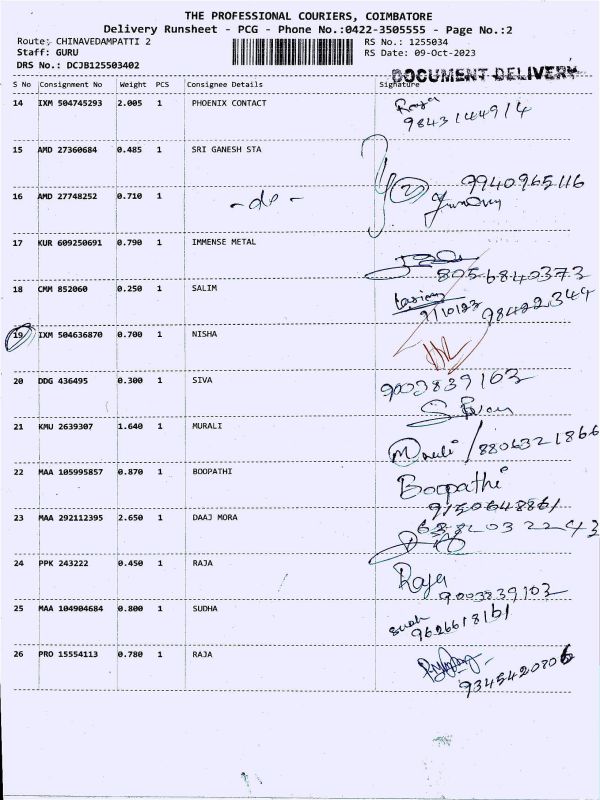 THE PROFESSIONAL COURIERS, COIMBATORE
Delivery Runsheet - PCG - Phone No.:0422-3505555 - Page No.:2
Route: CHINAVEDAMPATTI 2
RS No.: 1255034
Staff: GURU
RS Date: 09-Oct-2023
DRS No.: DCJB125503402
DOCUMENT DELIVERY
S No Consignment No Weight PCS Consignee Details Signature
14 IXM 504745293 2.005 1 PHOENIX CONTACT Raja
9843144914
15 AMD 27360684 0.485 1 SRI GANESH STA
9940965116
16 AMD 27748252 0.710 1 -do-
17 KUR 609250691 0.790 1 IMMENSE METAL
8056840373
18 CMM 852060 0.250 1 SALIM
9/10/23 98422344
19 IXM 504636870 0.700 1 NISHA
20 DDG 436495 0.300 1 SIVA 9003839103
21 KMU 2639307 1.640 1 MURALI Murali / 8806321866
22 MAA 105995857 0.870 1 BOOPATHI Boopathi
9150648861
23 MAA 292112395 2.650 1 DAAJ MORA
24 PPK 243222 0.450 1 RAJA Raja
9003839103
25 MAA 104904684 0.800 1 SUDHA
9626618161
26 PRO 15554113 0.780 1 RAJA
9345420806